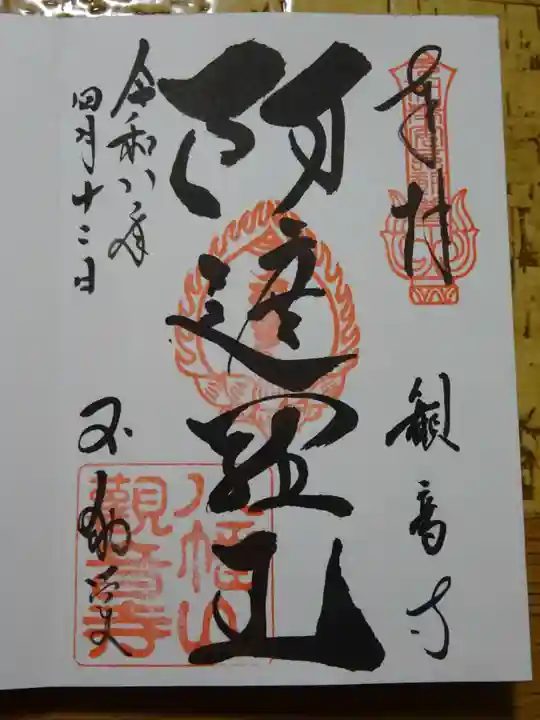 奉拝
観音寺
阿遮羅
令和八年
四月十二日
不動
八幡山
觀音寺